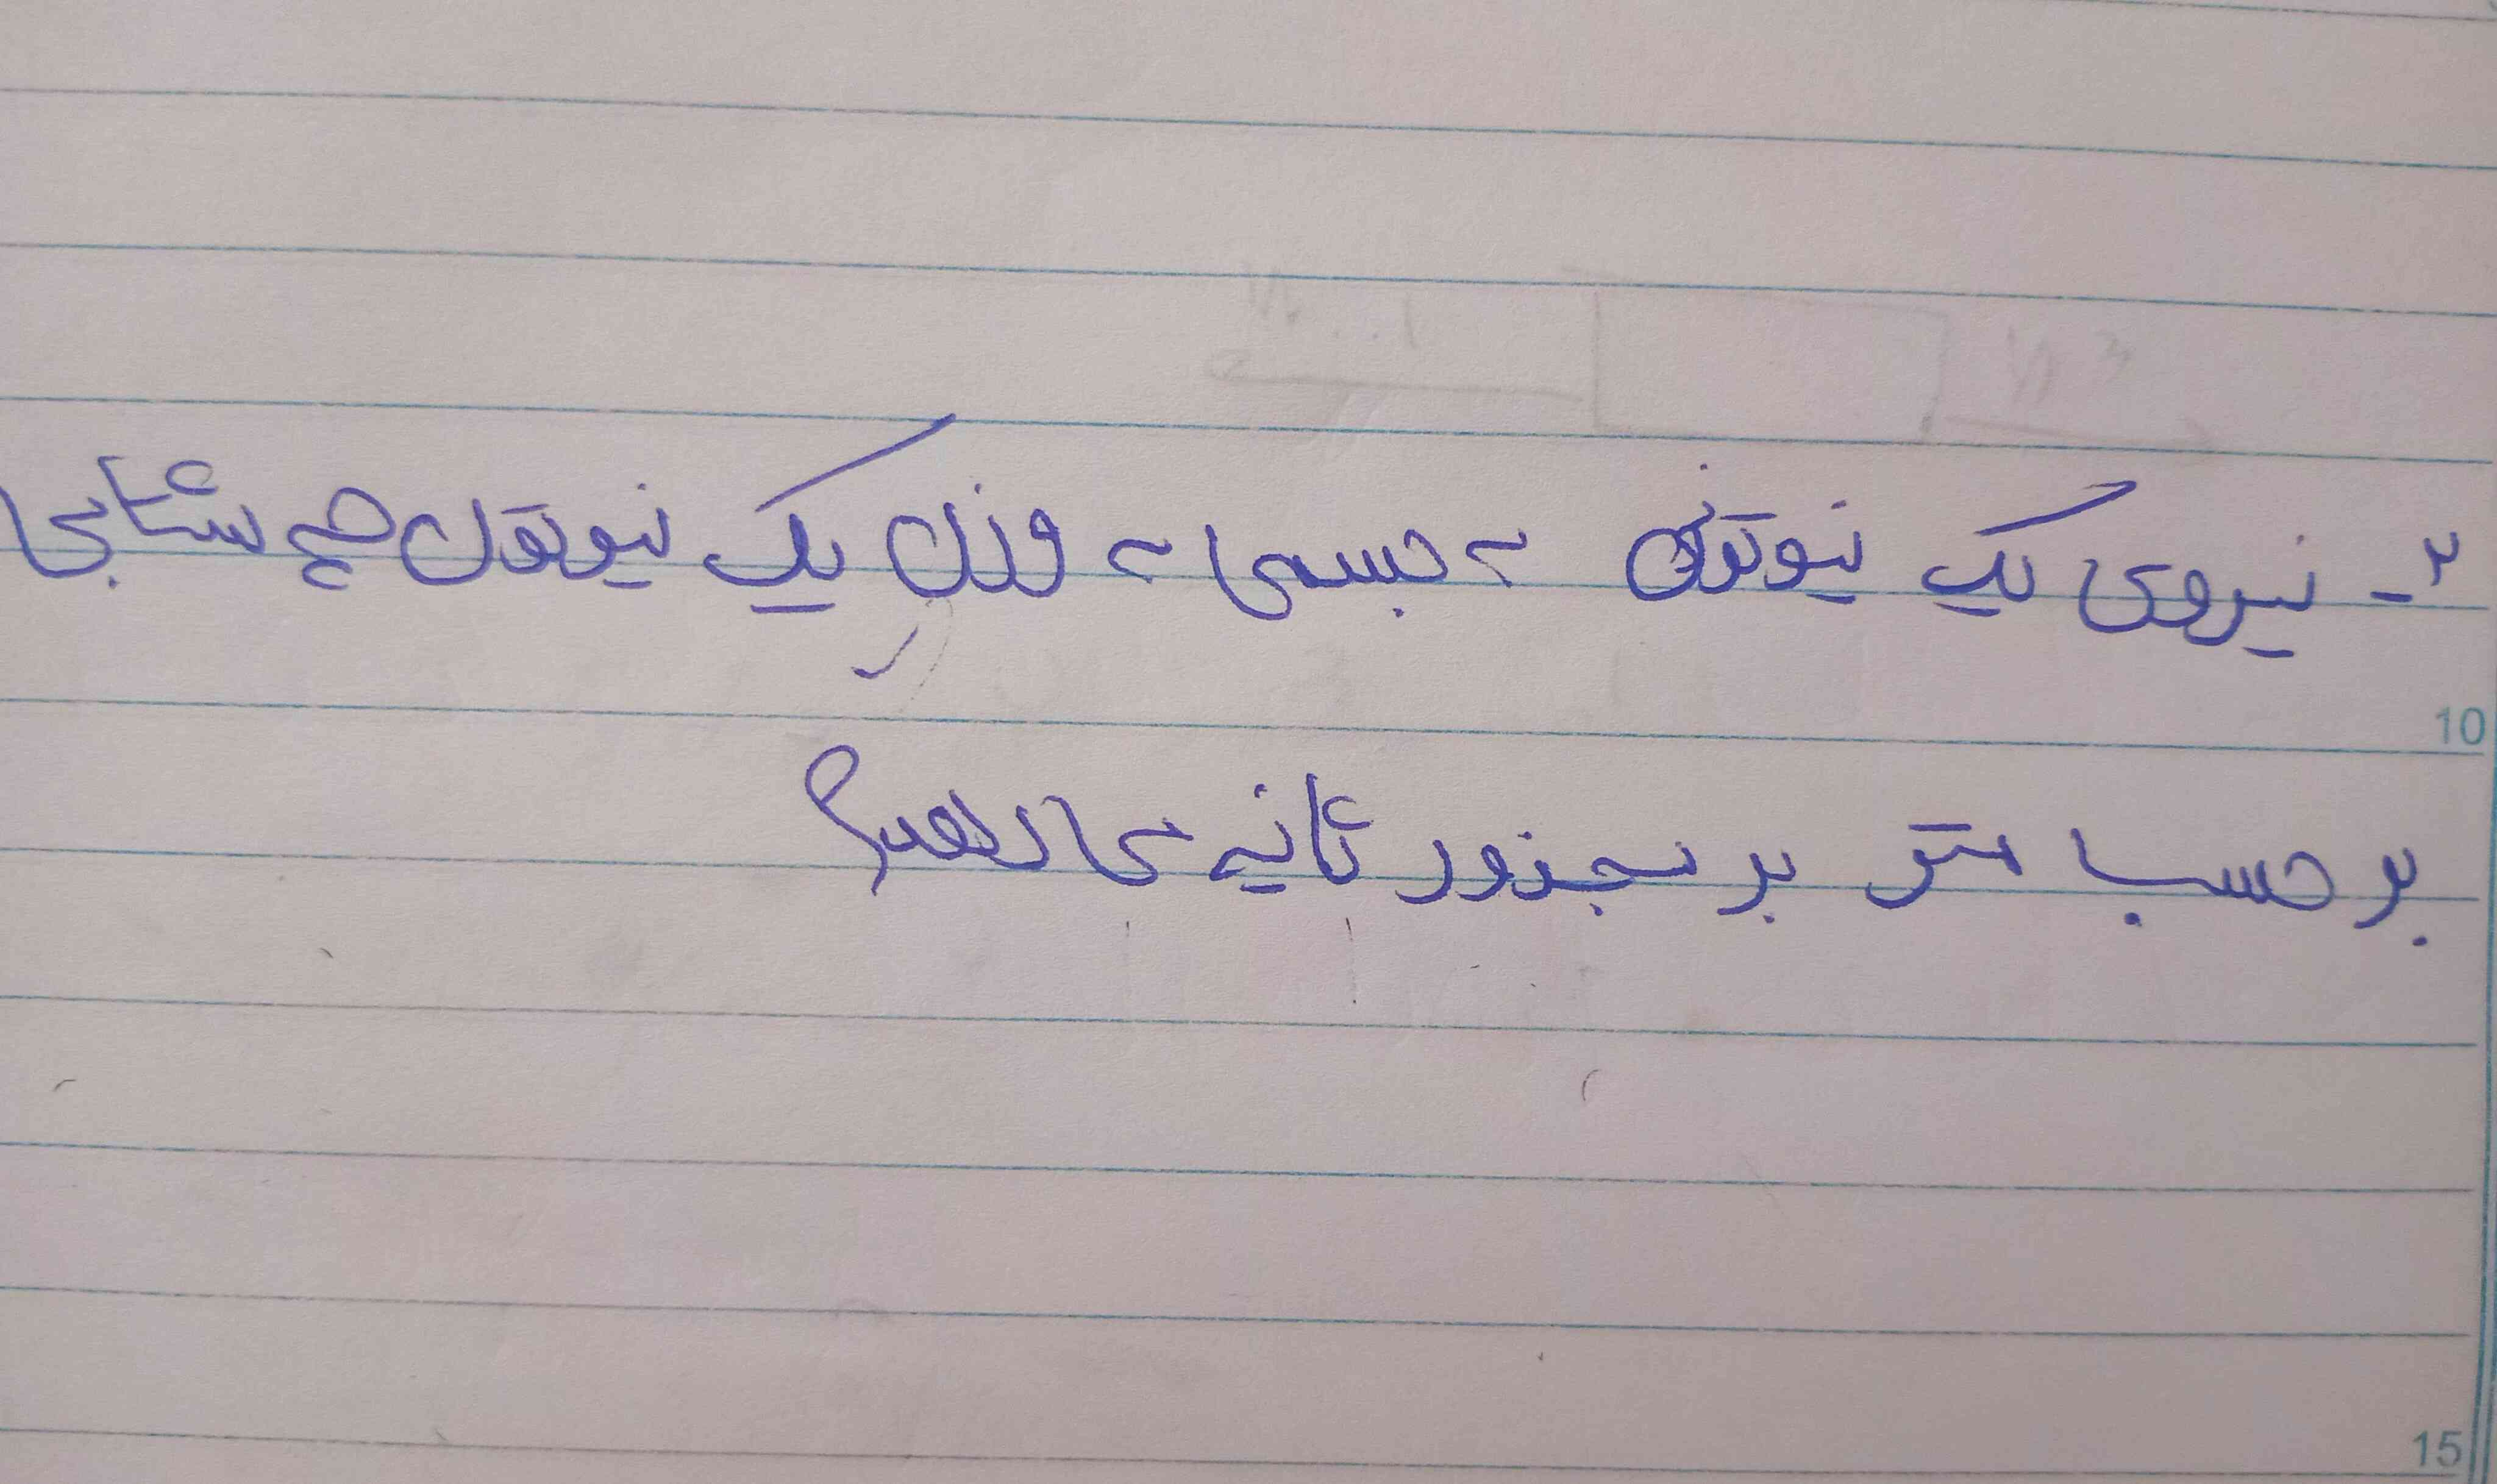 ۲- نیروی یک نیوتونی به جسمی به وزن یک نیوتون چه شتابی
10
بر حسب متر بر مجذور ثانیه می‌دهد؟
15